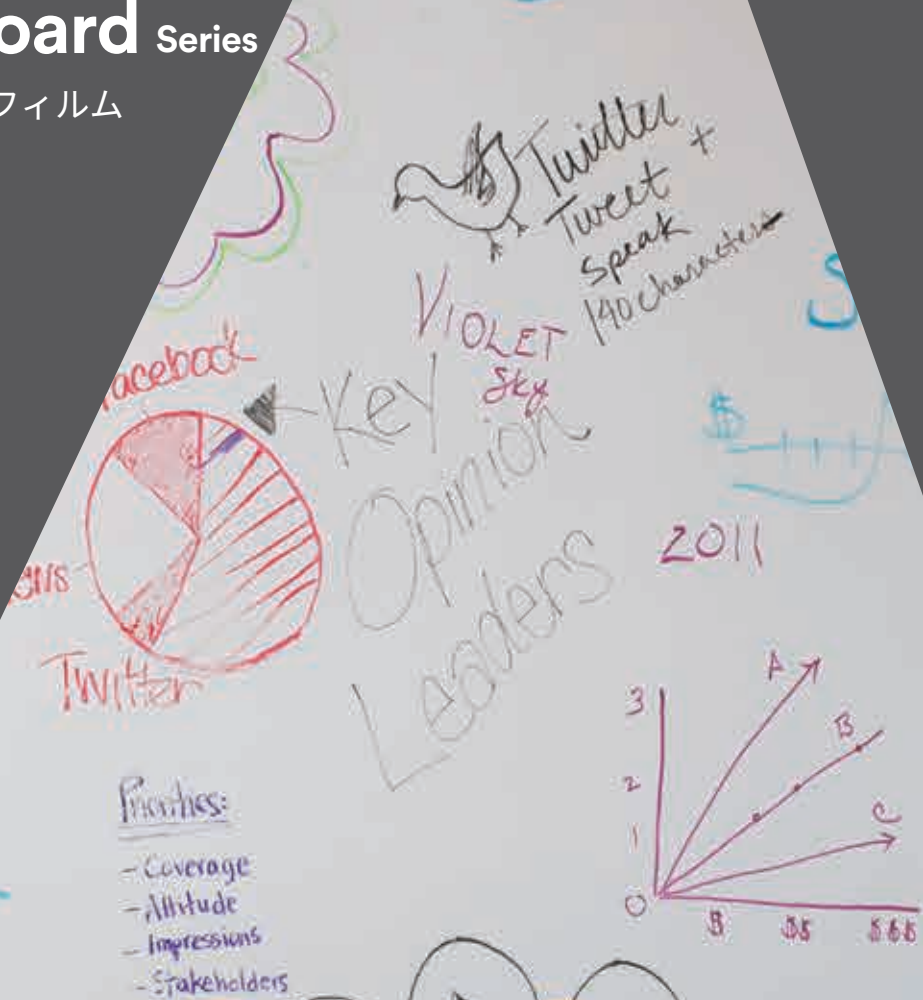 oard Series
フィルム
Twitter +
Tweet
Speak
140 characters
VIOLET
Sky
facebook
Key
Opinion
Leaders
$
2011
Twitter
3
2
1
0
A
B
C
$
$$
$$$
Priorities:
- Coverage
- Attitude
- Impressions
- Stakeholders